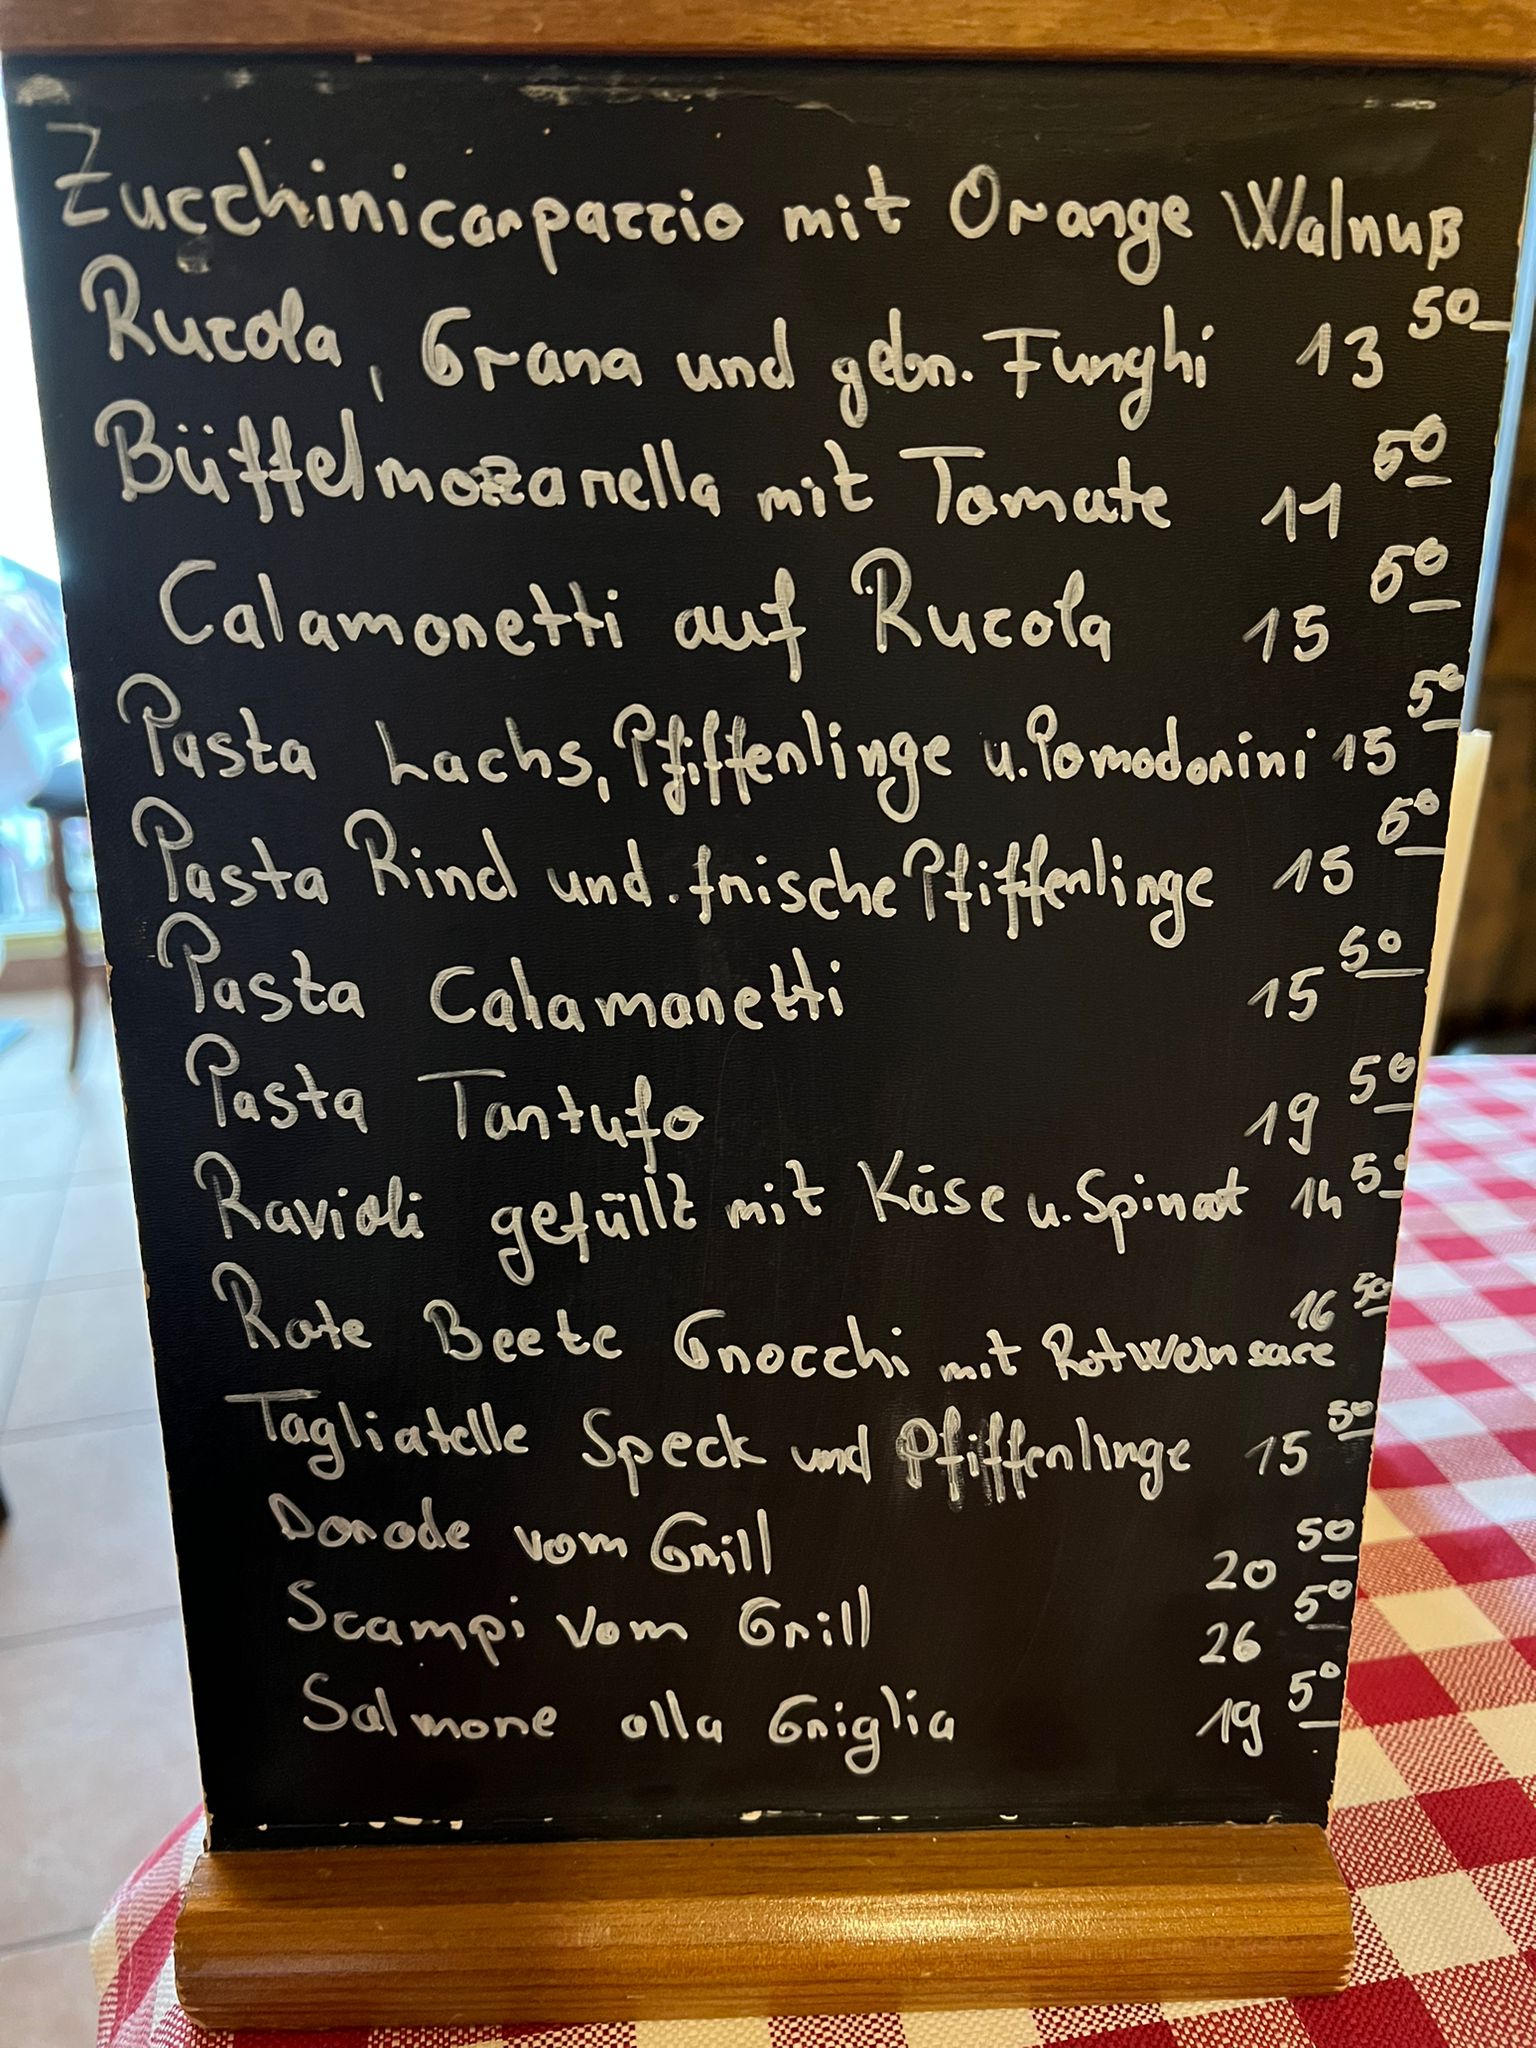 Zucchinicarpaccio mit Orange Walnuß
Rucola, Grana und gebr. Funghi 13 50
Büffelmozzarella mit Tomate 11 50
Calamaretti auf Rucola 15 50
Pasta Lachs, Pfifferlinge u. Pomodorini 15 50
Pasta Rind und frische Pfifferlinge 15 50
Pasta Calamaretti 15 50
Pasta Tartufo 19 50
Ravioli gefüllt mit Käse u. Spinat 14 50
Rote Beete Gnocchi mit Rotweinsace 16 50
Tagliatelle Speck und Pfifferlinge 15 50
Dorade vom Grill 20 50
Scampi vom Grill 26 50
Salmone alla Griglia 19 50